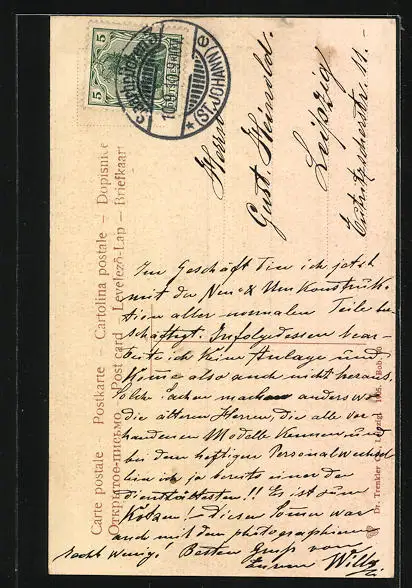 5
5
Saarbrücken 3
(ST. JOHANN)
e
Herrn
Gust. Heinold.
Leipzig
Eutritzscherstr. 11.
Im Geschäft bin ich jetzt
mit der Neu- & Um Konstruk-
tion aller normalen Teile be-
schäftigt. Infolgedessen bear-
beite ich keine Anlage und
Komme also auch nicht heraus.
Solche Sachen machen anderswo
die älteren Herren, die alle vor-
handenen Modelle Kennen, und
bei dem heftigen Personalwechsel
bin ich ja bereits einer der
dienstältesten!! Es ist zum
Kotzen! Diesen Sommer war
auch mit dem photographieren
recht wenig! Besten Gruß von
Eurem Willy
Carte postale – Postkarte – Cartolina postale – Dopisnice
Открытое письмо – Post card – Levelező-Lap – Briefkaart
Dr. Trenkler Leipzig